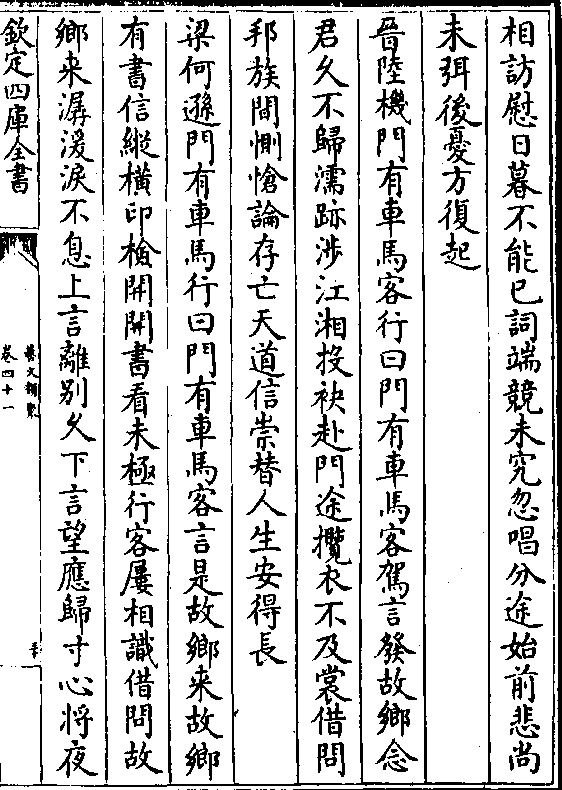 相訪慰日暮不能已詞端競未究忽唱分途始前悲尚
未弭後憂方復起
晉陸機門有車馬客行曰門有車馬客駕言發故鄉念
君久不歸濡跡涉江湘投袂赴門途攬衣不及裳借問
邦族間惻愴論存亡天道信崇替人生安得長
梁何遜門有車馬行曰門有車馬客言是故鄉来故鄉
有書信縱横印檢開開書看未極行客屢相識借問故
鄉来潺湲淚不息上言離别久下言望應歸寸心将夜
欽定四庫全書
藝文類聚
卷四十一